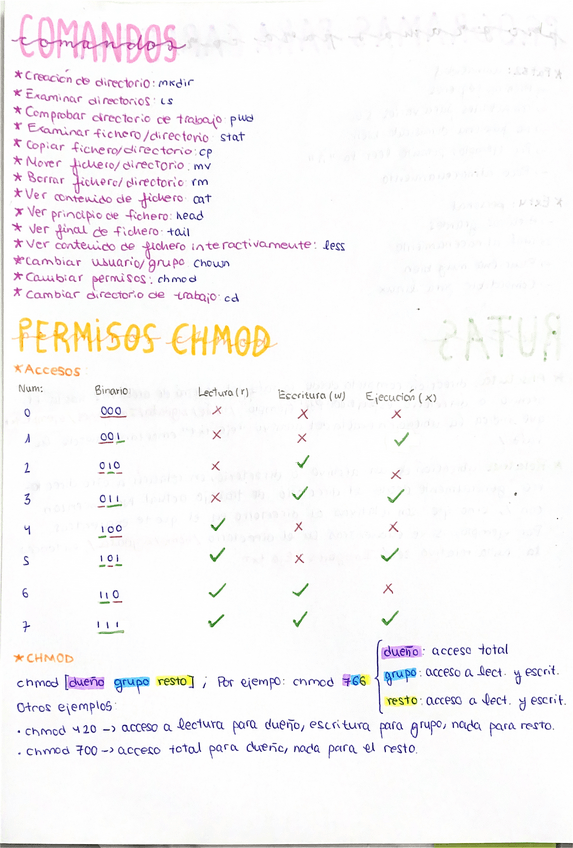 COMANDOS
comandos
* Creación de directorio: mkdir
* Examinar directorios: ls
* Comprobar directorio de trabajo: pwd
* Examinar fichero/directorio: stat
* Copiar fichero/directorio: cp
* Mover fichero/directorio: mv
* Borrar fichero/directorio: rm
* Ver contenido de fichero: cat
* Ver principio de fichero: head
* Ver final de fichero: tail
* Ver contenido de fichero interactivamente: less
* Cambiar usuario/grupo: chown
* Cambiar permisos: chmod
* Cambiar directorio de trabajo: cd
PERMISOS CHMOD
* Accesos:
Num: Binario Lectura (r) Escritura (w) Ejecución (x)
0 000 X X X
1 001 X X ✓
2 010 X ✓ X
3 011 X ✓ ✓
4 100 ✓ X X
5 101 ✓ X ✓
6 110 ✓ ✓ X
7 111 ✓ ✓ ✓
* CHMOD
chmod [dueño grupo resto] ; Por ejempo: chmod 766
dueño: acceso total
grupo: acceso a lect. y escrit.
resto: acceso a lect. y escrit.
Otros ejemplos:
· chmod 420 -> acceso a lectura para dueño, escritura para grupo, nada para resto.
· chmod 700 -> acceso total para dueño, nada para el resto.